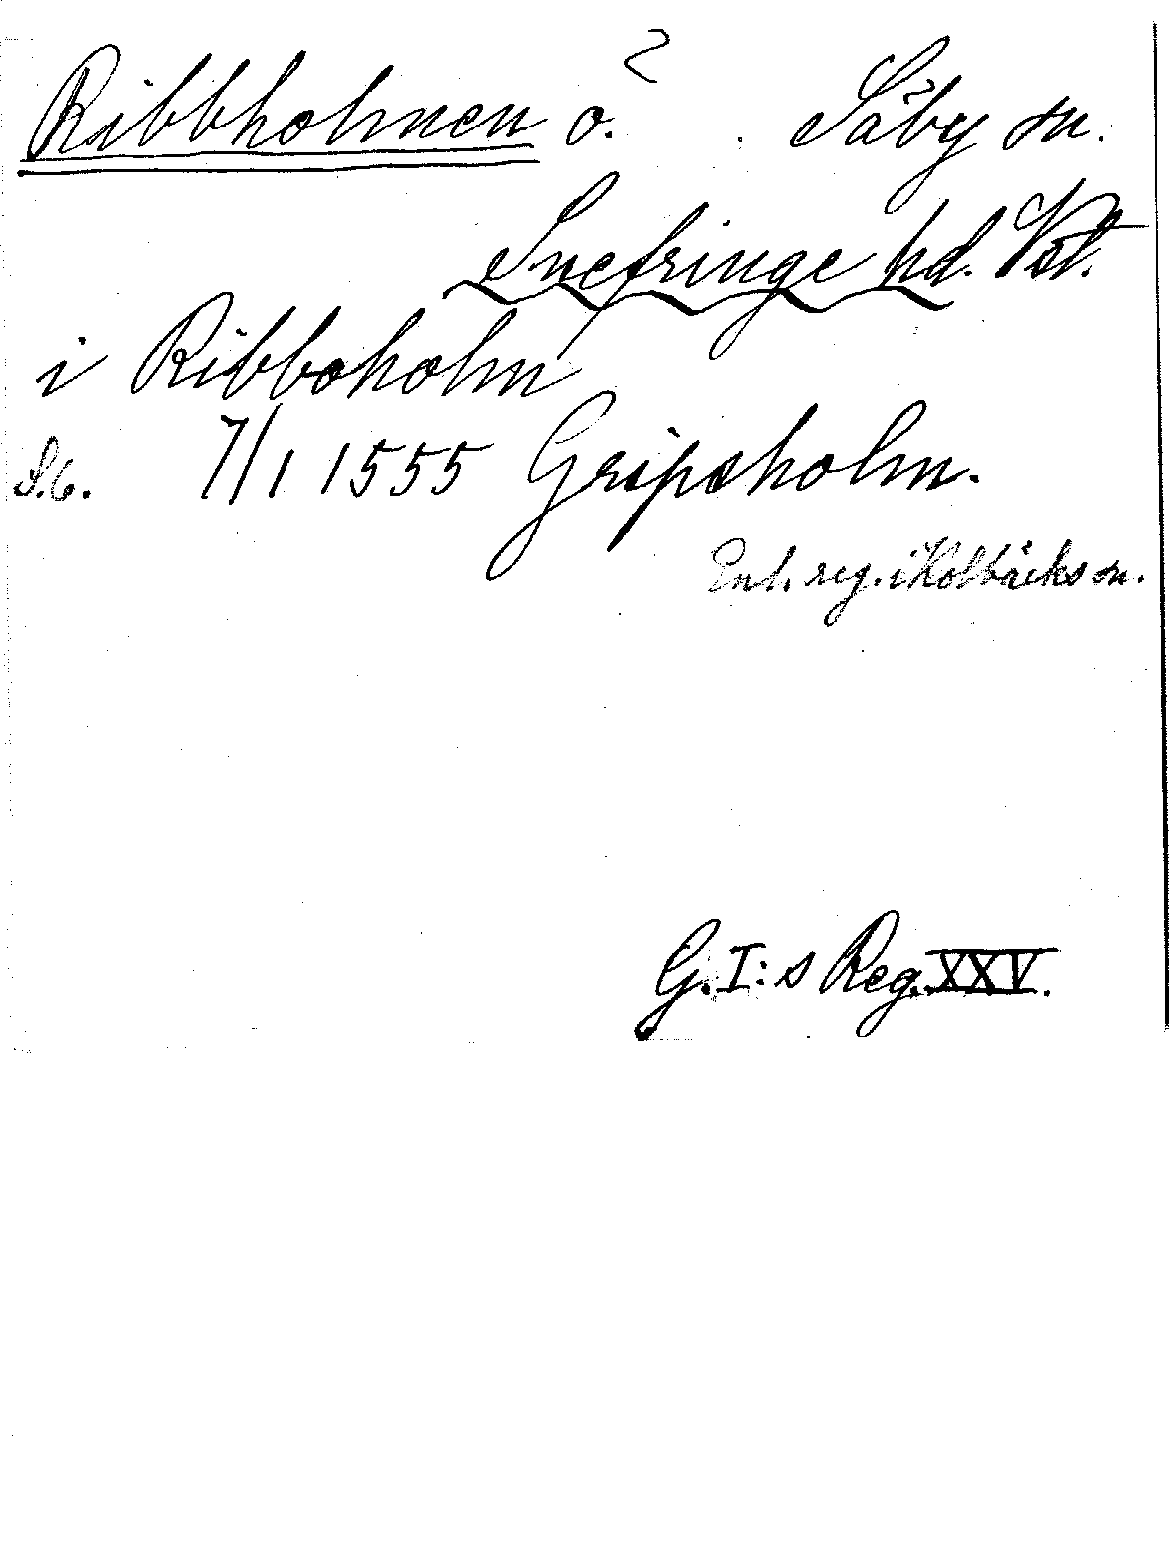 Ribbholmen ö. ? Säby sn.
Snefringe hd. Vstl.
i Ribboholm
S.6. 7/1 1555 Gripsholm.
Enl. reg. i Kolbäcks sn.
G.I:s Reg. XXV.